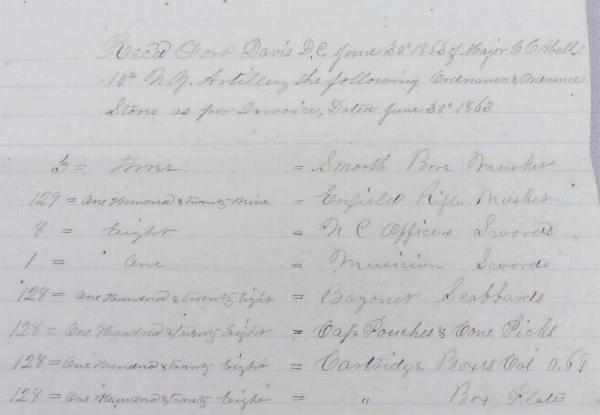 Recd Fort Davis D.C. June 30th 1863 of Major C C Abell
10th N.Y. Artillery the following Ordnance & Ordnance
Stores as per Invoice, Dated June 30th 1863
3 = Three = Smooth Bore Musket
129 = One Hundred & twenty nine = Enfield Rifle Musket
8 = Eight = N C Officers Swords
1 = One = Musician Swords
128 = One Hundred & twenty Eight = Bayonet Scabbards
128 = One Hundred & twenty Eight = Cap Pouches & Cone Picks
128 = One Hundred & twenty Eight = Cartridge Boxes Cal 0.69
128 = One Hundred & twenty Eight = " Box Plates